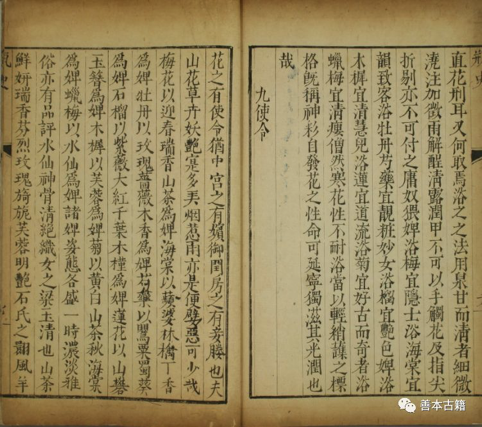 直花刑耳又何取焉浴之之法用泉甘而清者細微
澆注如微雨解酲清露潤甲不可以手觸花及指尖
折剔亦不可付之庸奴猥婢浴梅宜隱士浴海棠宜
韻致客浴牡丹芍藥宜靚粧妙女浴榴宜艷色婢浴
木樨宜清慧兒浴蓮宜道流浴菊宜好古而奇者浴
蠟梅宜清瘦僧然寒花性不耐浴當以輕綃護之標
格既稱神彩自發花之性命可延寧獨滋其光潤也
哉
九使令
花之有使令猶中宮之有嬪御閨房之有妾媵也夫
山花草卉妖艷寔多弄烟惹雨亦是便嬖惡可少哉
梅花以迎春瑞香山茶為婢海棠以蘋婆林檎丁香
為婢牡丹以玫瑰薔薇木香為婢芍藥以鶯粟蜀葵
為婢石榴以紫薇大紅千葉木槿為婢蓮花以山礬
玉簪為婢木樨以芙蓉為婢菊以黃白山茶秋海棠
為婢蠟梅以水仙為婢諸婢姿態各盛一時濃淡雅
俗亦有品評水仙神骨清絕織女之梁玉清也山茶
鮮妍瑞香芬烈玫瑰旖旎芙蓉明艷石氏之翾風羊
善本古籍